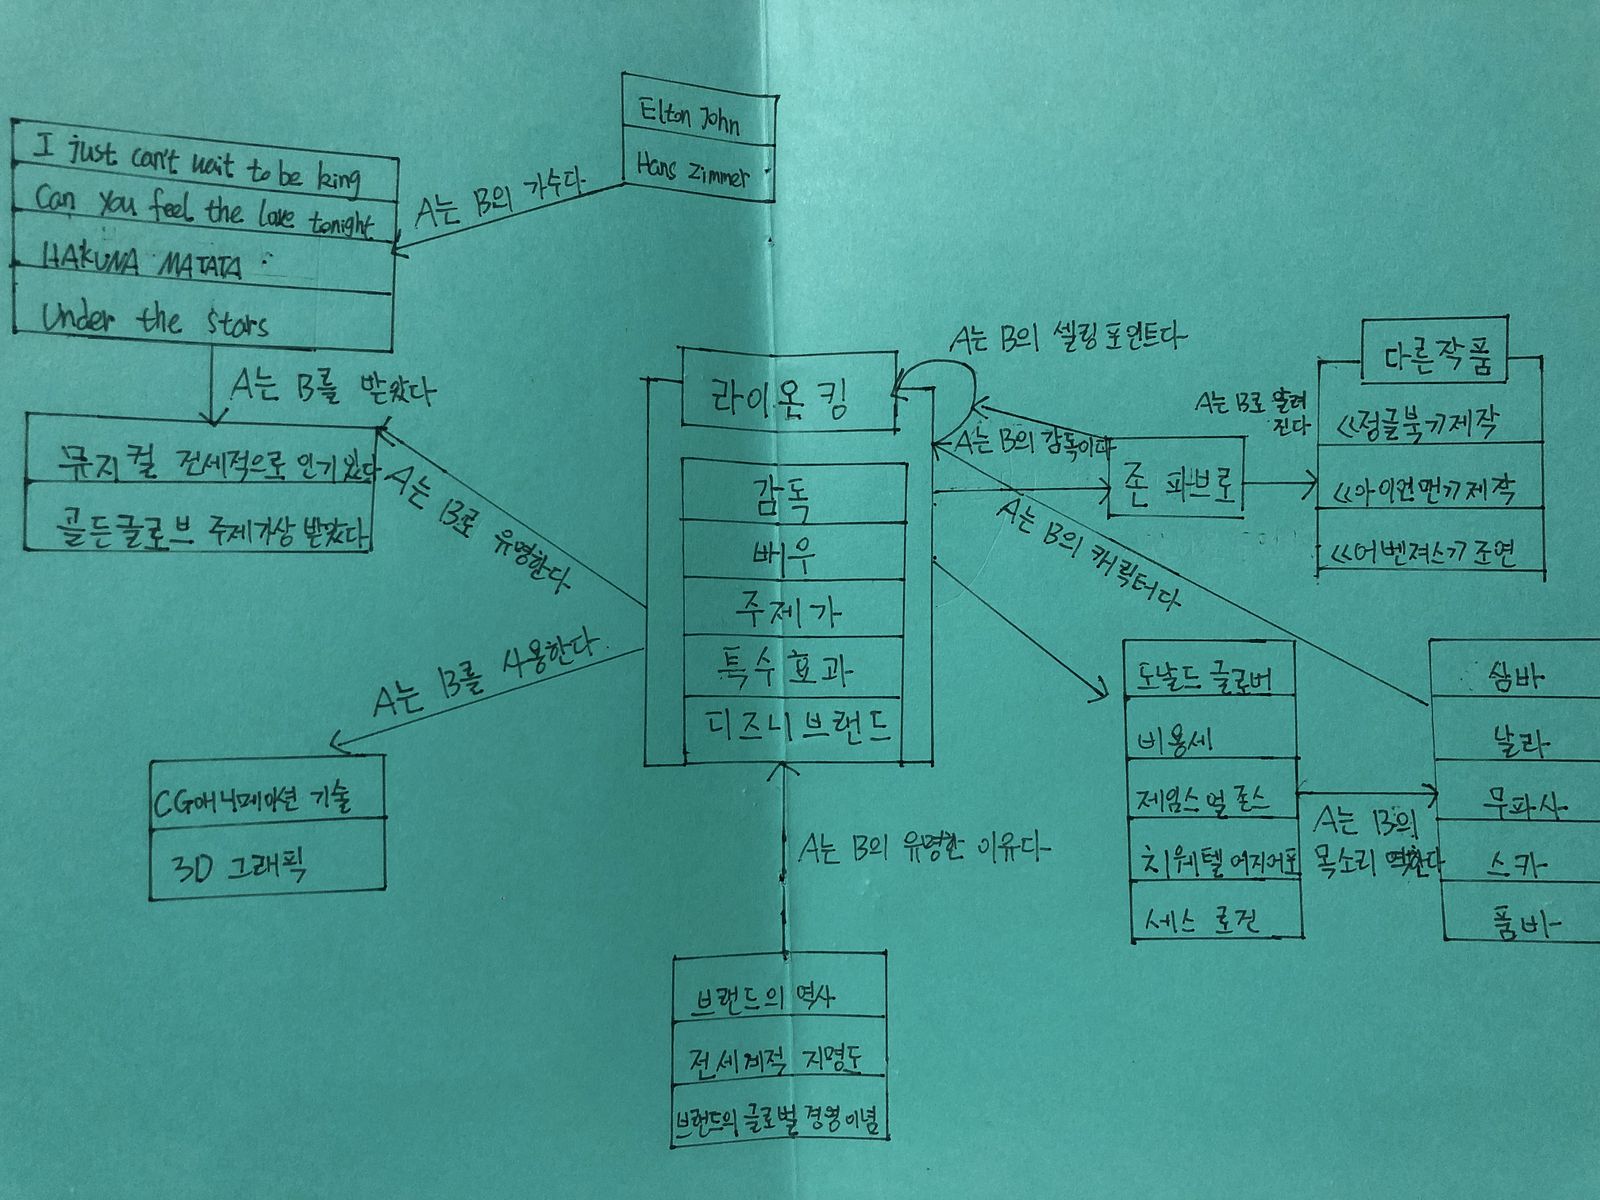 Elton John
Hans Zimmer
I just can't wait to be king
Can you feel the love tonight
HAKUNA MATATA
Under the stars
A는 B의 가수다
A는 B를 받았다
뮤지컬 전세적으로 인기있다
골든글로브 주제가상 받았다
A는 B로 유명한다
A는 B를 사용한다
CG애니메이션 기술
3D 그래픽
라이온 킹
감독
배우
주제가
특수효과
디즈니브랜드
A는 B의 셀링포인트다
A는 B의 감독이다
존 파브로
A는 B로 알려
진다
다른작품
<<정글북>>제작
<<아이언맨>>제작
<<어벤져스>>조연
A는 B의 캐릭터다
도날드 글로버
비용세
제임스 얼 존스
치웨텔 에지어포
세스 로건
A는 B의
목소리 역한다
심바
날라
무파사
스카
품바
A는 B의 유명한 이유다
브랜드의 역사
전세계적 지명도
브랜드의 글로벌 경영이념